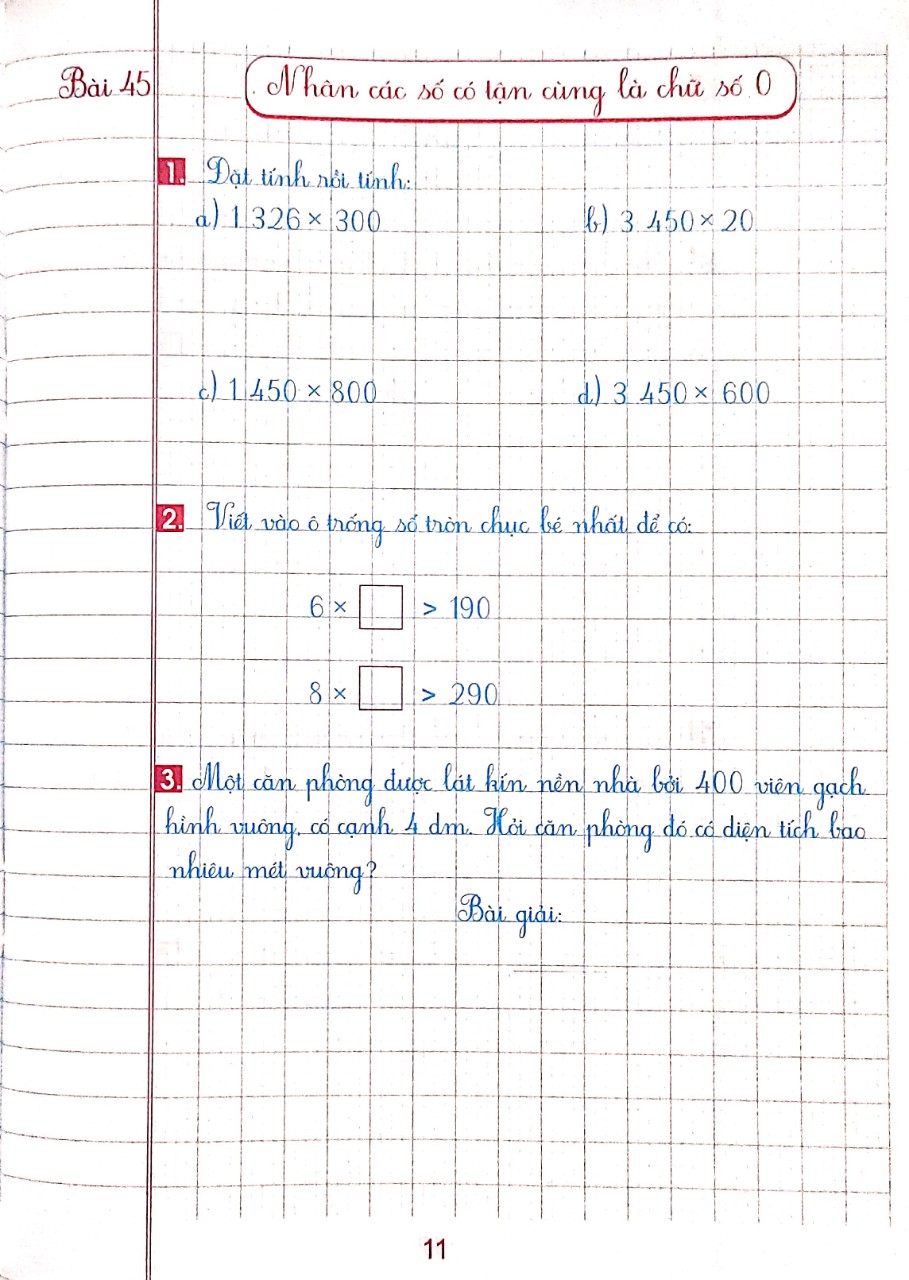 Bài 45
Nhân các số có tận cùng là chữ số 0
1. Đặt tính rồi tính:
a) 1 326 × 300 b) 3 450 × 20
c) 1 450 × 800 d) 3 450 × 600
2. Viết vào ô trống số tròn chục bé nhất để có:
6 × □ > 190
8 × □ > 290
3. Một căn phòng được lát kín nền nhà bởi 400 viên gạch
hình vuông, có cạnh 4 dm. Hỏi căn phòng đó có diện tích bao
nhiêu mét vuông?
Bài giải:
11